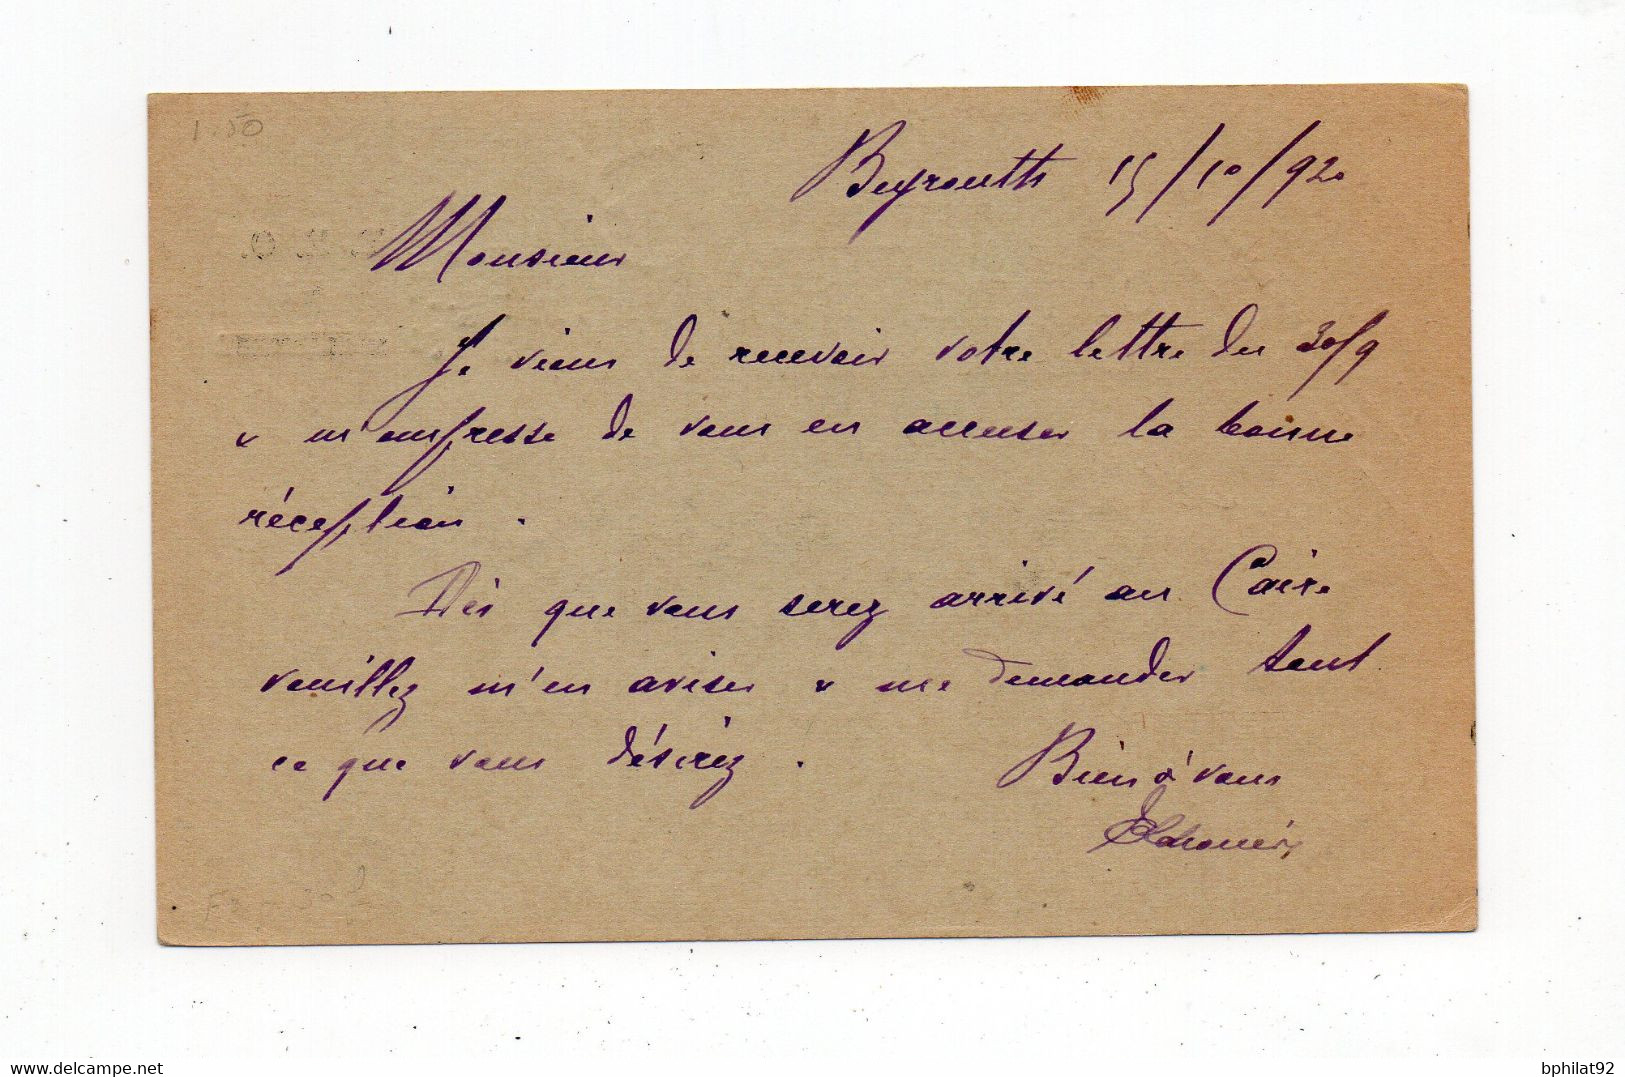 1.50
Beyrouth 15/10/920
Monsieur
Je viens de recevoir votre lettre du 30/9
& m'empresse de vous en accuser la bonne
réception.
Dès que vous serez arrivé au Caire
veuillez m'en aviser & me demander tout
ce que vous désirez.
Bien à vous
delcampe.net
bphilat92